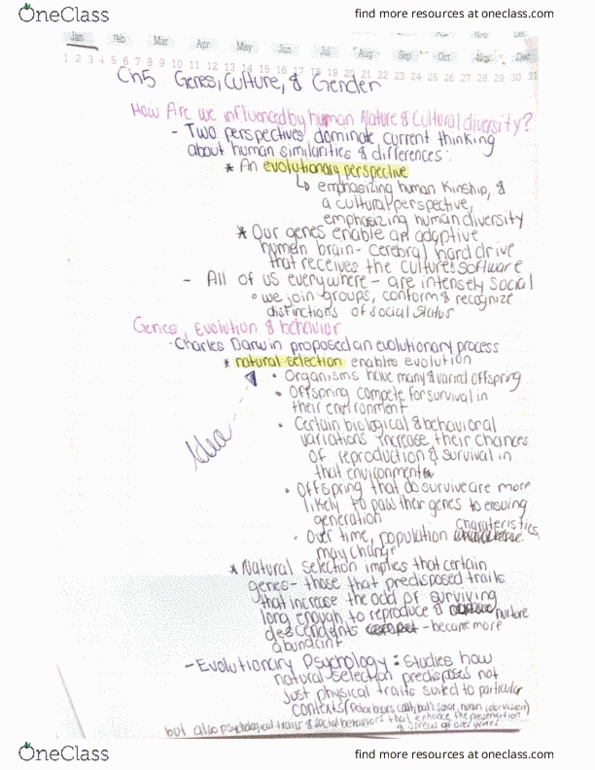 OneClass
find more resources at oneclass.com
Jan Feb Mar Apr May Jun Jul Aug Sep Oct Nov Dec
1 2 3 4 5 6 7 8 9 10 11 12 13 14 15 16 17 18 19 20 21 22 23 24 25 26 27 28 29 30 31
Ch5 Genes, Culture, & Gender
How Are we influenced by human Nature & Cultural diversity?
- Two perspectives dominate current thinking
about human similarities & differences:
* An evolutionary perspective
↳ emphasizing human Kinship, &
a cultural perspective,
emphasizing human diversity
* Our genes enable an adaptive
human brain - cerebral hard drive
that receives the culture's software
- All of us everywhere - are intensely social
° we join groups, conform & recognize
distinctions of social status
Genes, Evolution & behavior
- Charles Darwin proposed an evolutionary process
* natural selection enables evolution
• Organisms have many & varied offspring
• Offspring compete for survival in
their environment
Idea
• Certain biological & behavioral
variations increase their chances
of reproduction & survival in
that environment
• Offspring that do survive are more
likely to pass their genes to ensuing
generation
• Over time, population charateristics
may change
* Natural selection implies that certain
genes - those that predisposed traits
that increase the odd of surviving
long enough to reproduce & nurture
descendents - became more
abundant
- Evolutionary Psychology: Studies how
natural selection predisposes not
just physical traits suited to particular
contexts (Polar bears coats, bats sonar, human color vision)
but also psychological traits & social behaviors that enhance the preservation
& spread of over genes
OneClass
find more resources at oneclass.com